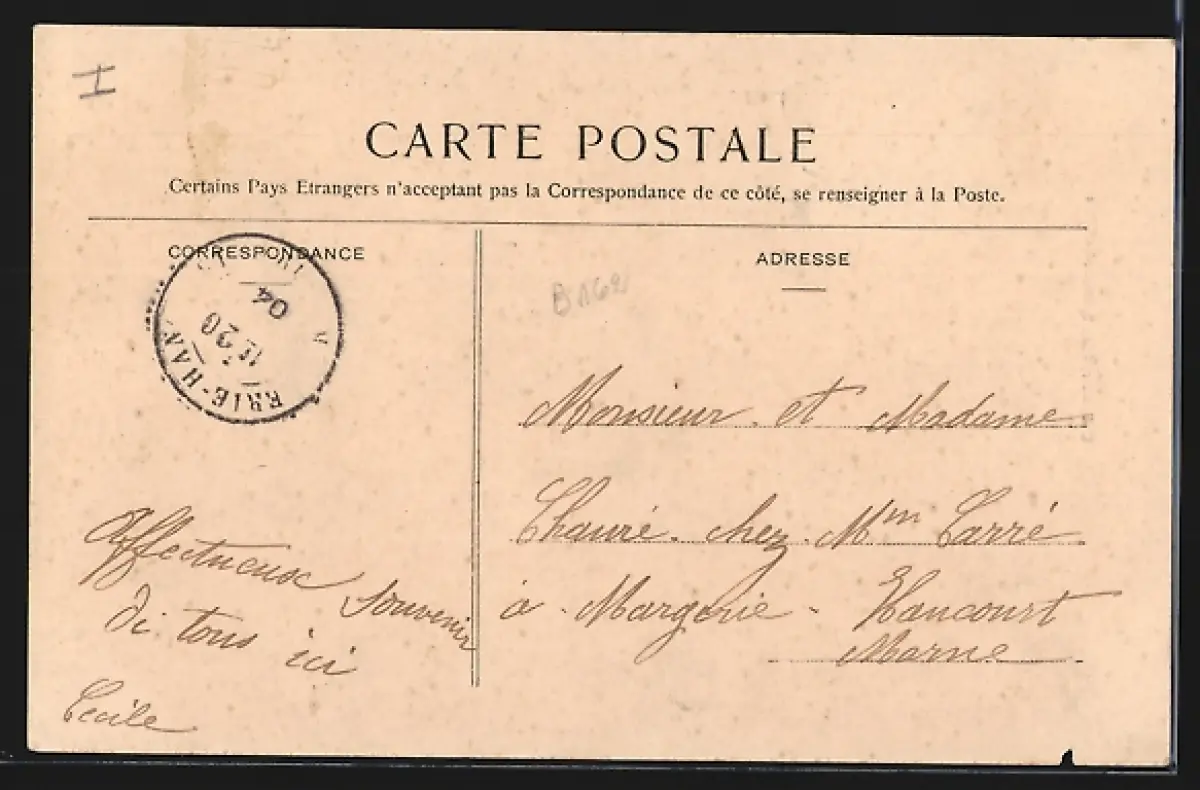 I
CARTE POSTALE
Certains Pays Etrangers n'acceptant pas la Correspondance de ce côté, se renseigner à la Poste.
CORRESPONDANCE
ERIE-HAN
20
04
Affectueux souvenir
de tous ici
Cécile
ADRESSE
B162
Monsieur et Madame
Chauré chez Mm Carré
à Margerie - Hancourt
Marne